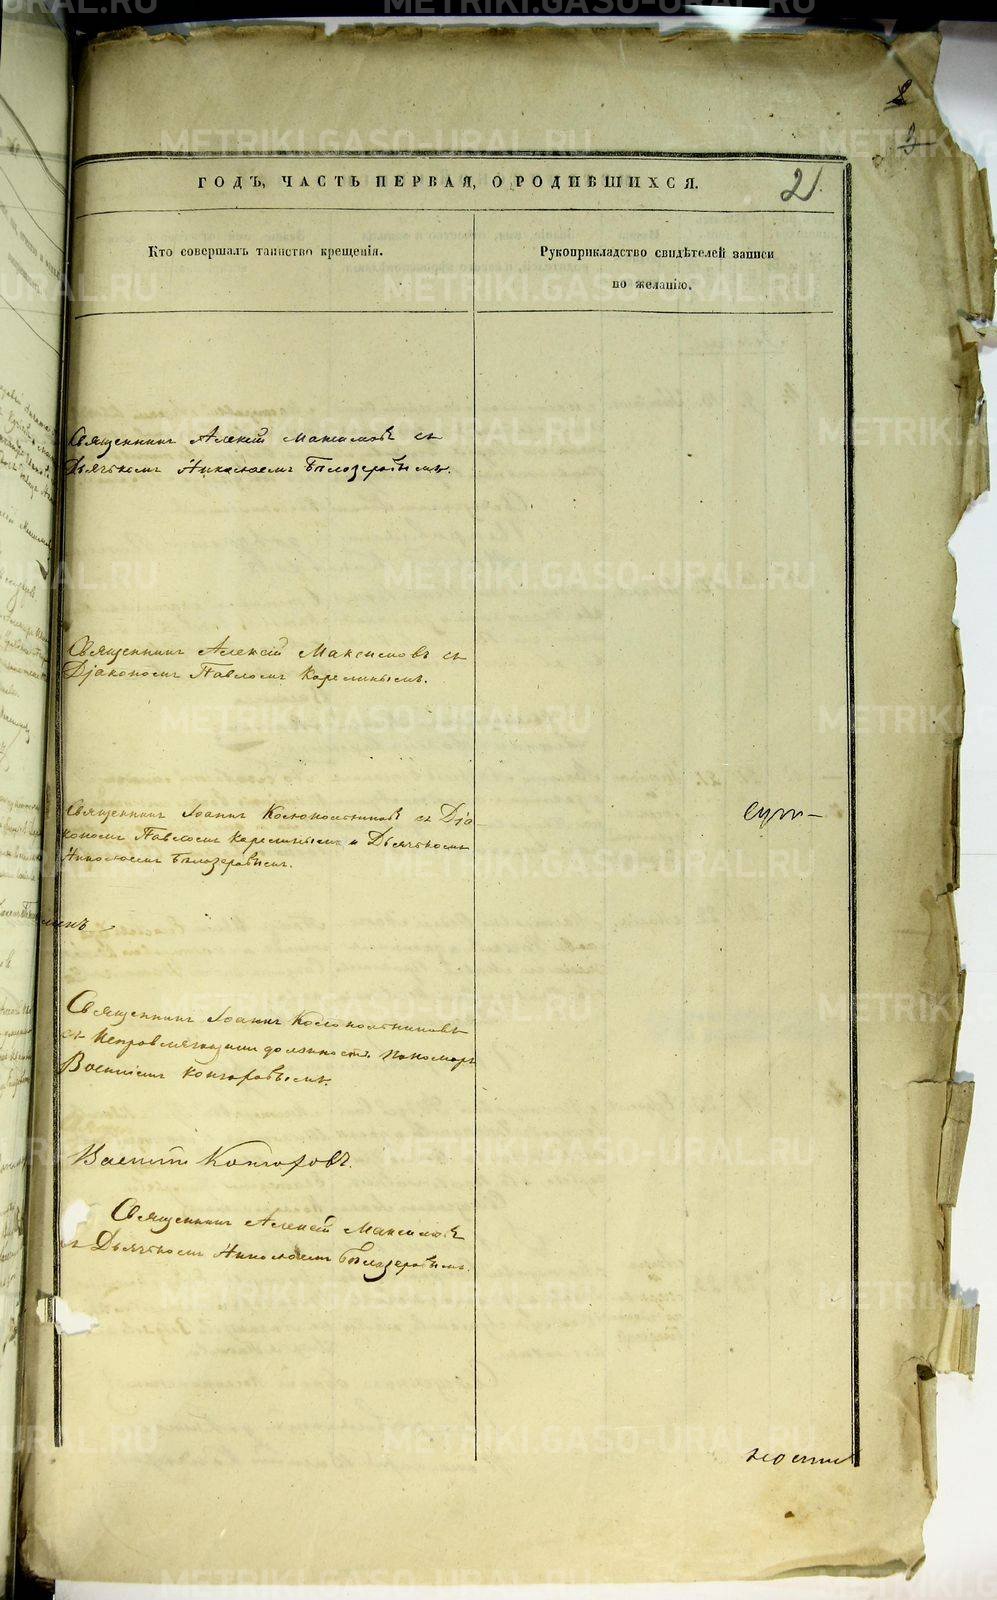 2
3
ГОДЪ, ЧАСТЬ ПЕРВАЯ, О РОДИВШИХСЯ.
2
Кто совершалъ таинство крещенія.
Рукоприкладство свидѣтелей записи
по желанію.
Священникъ Алексій Максимовъ съ
Дьячкомъ Николаемъ Бѣлозеровымъ.
Священникъ Алексій Максимовъ съ
Діакономъ Павломъ Карелинымъ.
Священникъ Іоаннъ Колокольниковъ съ Діа-
кономъ Павломъ Карелинымъ и Дьячкомъ
Николаемъ Бѣлозеровымъ.
Священникъ Іоаннъ Колокольниковъ
съ Исправляющимъ должность Пономаря
Васи­ліемъ Конгоровымъ.
Василій Конгоровъ.
Священникъ Алексій Максимовъ
съ Дьячкомъ Николаемъ Бѣлозеровымъ.
METRIKI.GASO-URAL.RU